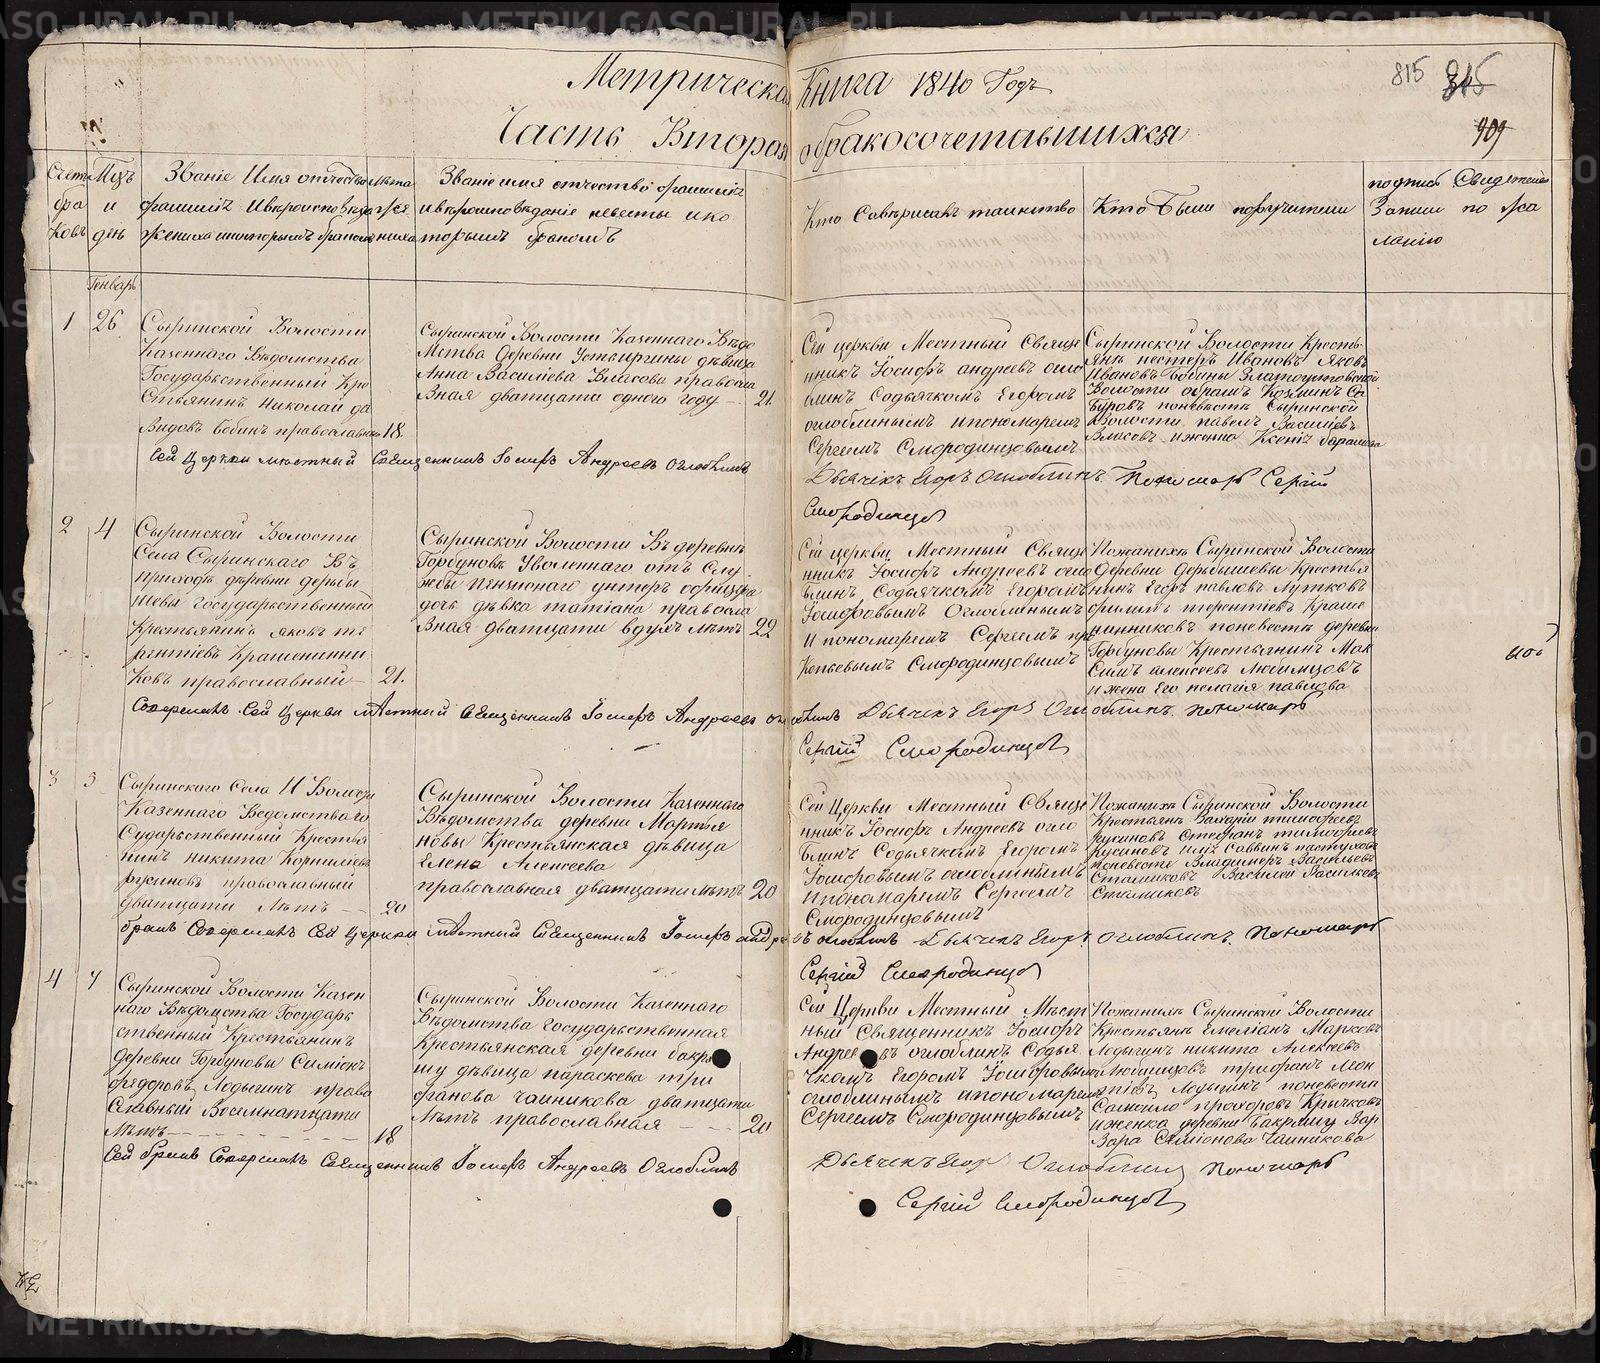 Метрическая Книга 1840 Годъ
815 815
Часть Вторая о бракосочетавшихся
409
Счет Мцъ Званіе Имя отчество Лѣта Званіе имя отчество фамиліе
и фамиліе и вѣроисповѣда и вѣроисповѣданіе невесты и ко
день жениха и которымъ бракомъ жениха торымъ бракомъ
Кто Совершалъ таинство Кто Были поручители
подпись Свидетелей
Записи по жела
ланію
Генварь
1 26 Сыринской Волости
Казеннаго Вѣдомства
Государьственный Кре
Стьянинъ Николай да
Видовъ бабинъ православный 18
Сыринской Волости Казеннаго Вѣдо
Мства Деревни Устьиргины дѣвица
Анна Василіева Власова правосла
Вная дватцати одного году 21
Сей церкви Местный Свяще
нникъ Іосифъ андреевъ огло
блинъ Содьячкомъ Егоромъ
оглоблинымъ ипономаремъ
Сергеемъ Смородинцовымъ
Сыринской Волости Кресть
янъ нестеръ Ивановъ Яковъ
Ивановъ Бабины Златоустовской
Волости абрамъ Козминъ
поневесте Сыринской
Волости павелъ Василіевъ
Власовъ ижена Ксенія
Сей Церкви мѣстный Священникъ Іосифъ Андреевъ Оглоблинъ
Дьячекъ Егоръ Оглоблинъ. Пономарь Сергій
Смородинцовъ
2 4 Сыринской Волости
Села Сыринскаго Въ
приходѣ деревни дербы
шевы государьственный
Крестьянинъ яковъ те
рентіевъ Крашенинни
Ковъ православный 21.
Сыринской Волости Въ деревни
Горбуновѣ Уволеннаго отъ Слу
жбы пензіонаго унтеръ офицера
дочь дѣвка татіана правосла
Вная дватцати вдухъ лѣтъ 22
Сей церкви Местный Свяще
нникъ Іосифъ Андреевъ огло
блинъ Содьячкомъ Егоромъ
Іосифовымъ Оглоблинымъ
И пономаремъ Сергеемъ про
Копьевымъ Смородинцовымъ
Пожанихѣ Сыринской Волости
Деревни Дербышевы Крестья
нинъ Егоръ павловъ
филипъ терентіевъ Краше
нинниковъ поневесте деревни
Горбуновы Крестьянинъ Мак
Симъ алексеевъ Любимцовъ
ижена Его пелагія павлова
Совершалъ Сей Церкви мѣстный Священникъ Іосифъ Андреевъ Оглоблинъ Дьячекъ Егоръ Оглоблинъ. Пономарь
Сергій Смородинцовъ
3 5 Сыринскаго Села И Волости
Казеннаго Ведомства го
Сударьственный Крестья
нинъ никита Корниліевъ
русиновъ православный
дватцати лѣтъ 20
Сыринской Волости Казеннаго
Вѣдомства деревни Мартья
новы Крестьянская дѣвица
Елена Алексеева
православная дватцати лѣтъ 20
Сей Церкви Местный Свяще
нникъ Іосифъ Андреевъ огло
блинъ Содьячкомъ Егоромъ
Іосифовымъ оглоблинымъ
ипономаремъ Сергеемъ
Смородинцовымъ
Пожанихѣ Сыринской Волости
Крестьянъ Захаріи тимофеевъ
русиновъ Стефанъ тимофеевъ
Русиновъ Саввинъ пастуховъ
поневесте Владимеръ Васильевъ
Стамиковъ Василей Васильевъ
Стамиковъ
бракъ Совершалъ Сей Церкви мѣстный Священникъ Іосифъ Андреевъ Оглоблинъ Дьячекъ Егоръ Оглоблинъ. Пономарь
Сергій Смородинцовъ
4 7 Сыринской Волости Казен
наго Вѣдомства Государь
ственный Крестьянинъ
деревни Горбуновы Симіонъ
федоровъ Лодыгинъ право
Славный Восемнатцати
лѣтъ 18
Сыринской Волости Казеннаго
Вѣдомства государьственная
Крестьянская деревни бакря
шу дѣвица параскева три
фанова чаиникова дватцати
лѣтъ православная 20
Сей Церкви Местный Мѣст
ный Священникъ Іосифъ
Андреевъ оглоблинъ Содья
чкомъ Егоромъ Іосифовымъ
оглоблинымъ ипономаремъ
Сергеемъ Смородинцовымъ
Пожанихѣ Сыринской Волости
Крестьянъ Емеліанъ Марковъ
Лодыгинъ никита Алексеевъ
Любимцовъ трифанъ Леон
тіевъ Лодыгинъ поневести
Самоило прохоровъ Крычковъ
иженка деревни Бакряшу Вар
Вара Симіонова Чаиникова
Сей бракъ Совершалъ Священникъ Іосифъ Андреевъ Оглоблинъ
Дьячекъ Егоръ Оглоблинъ Пономарь
Сергій Смородинцовъ